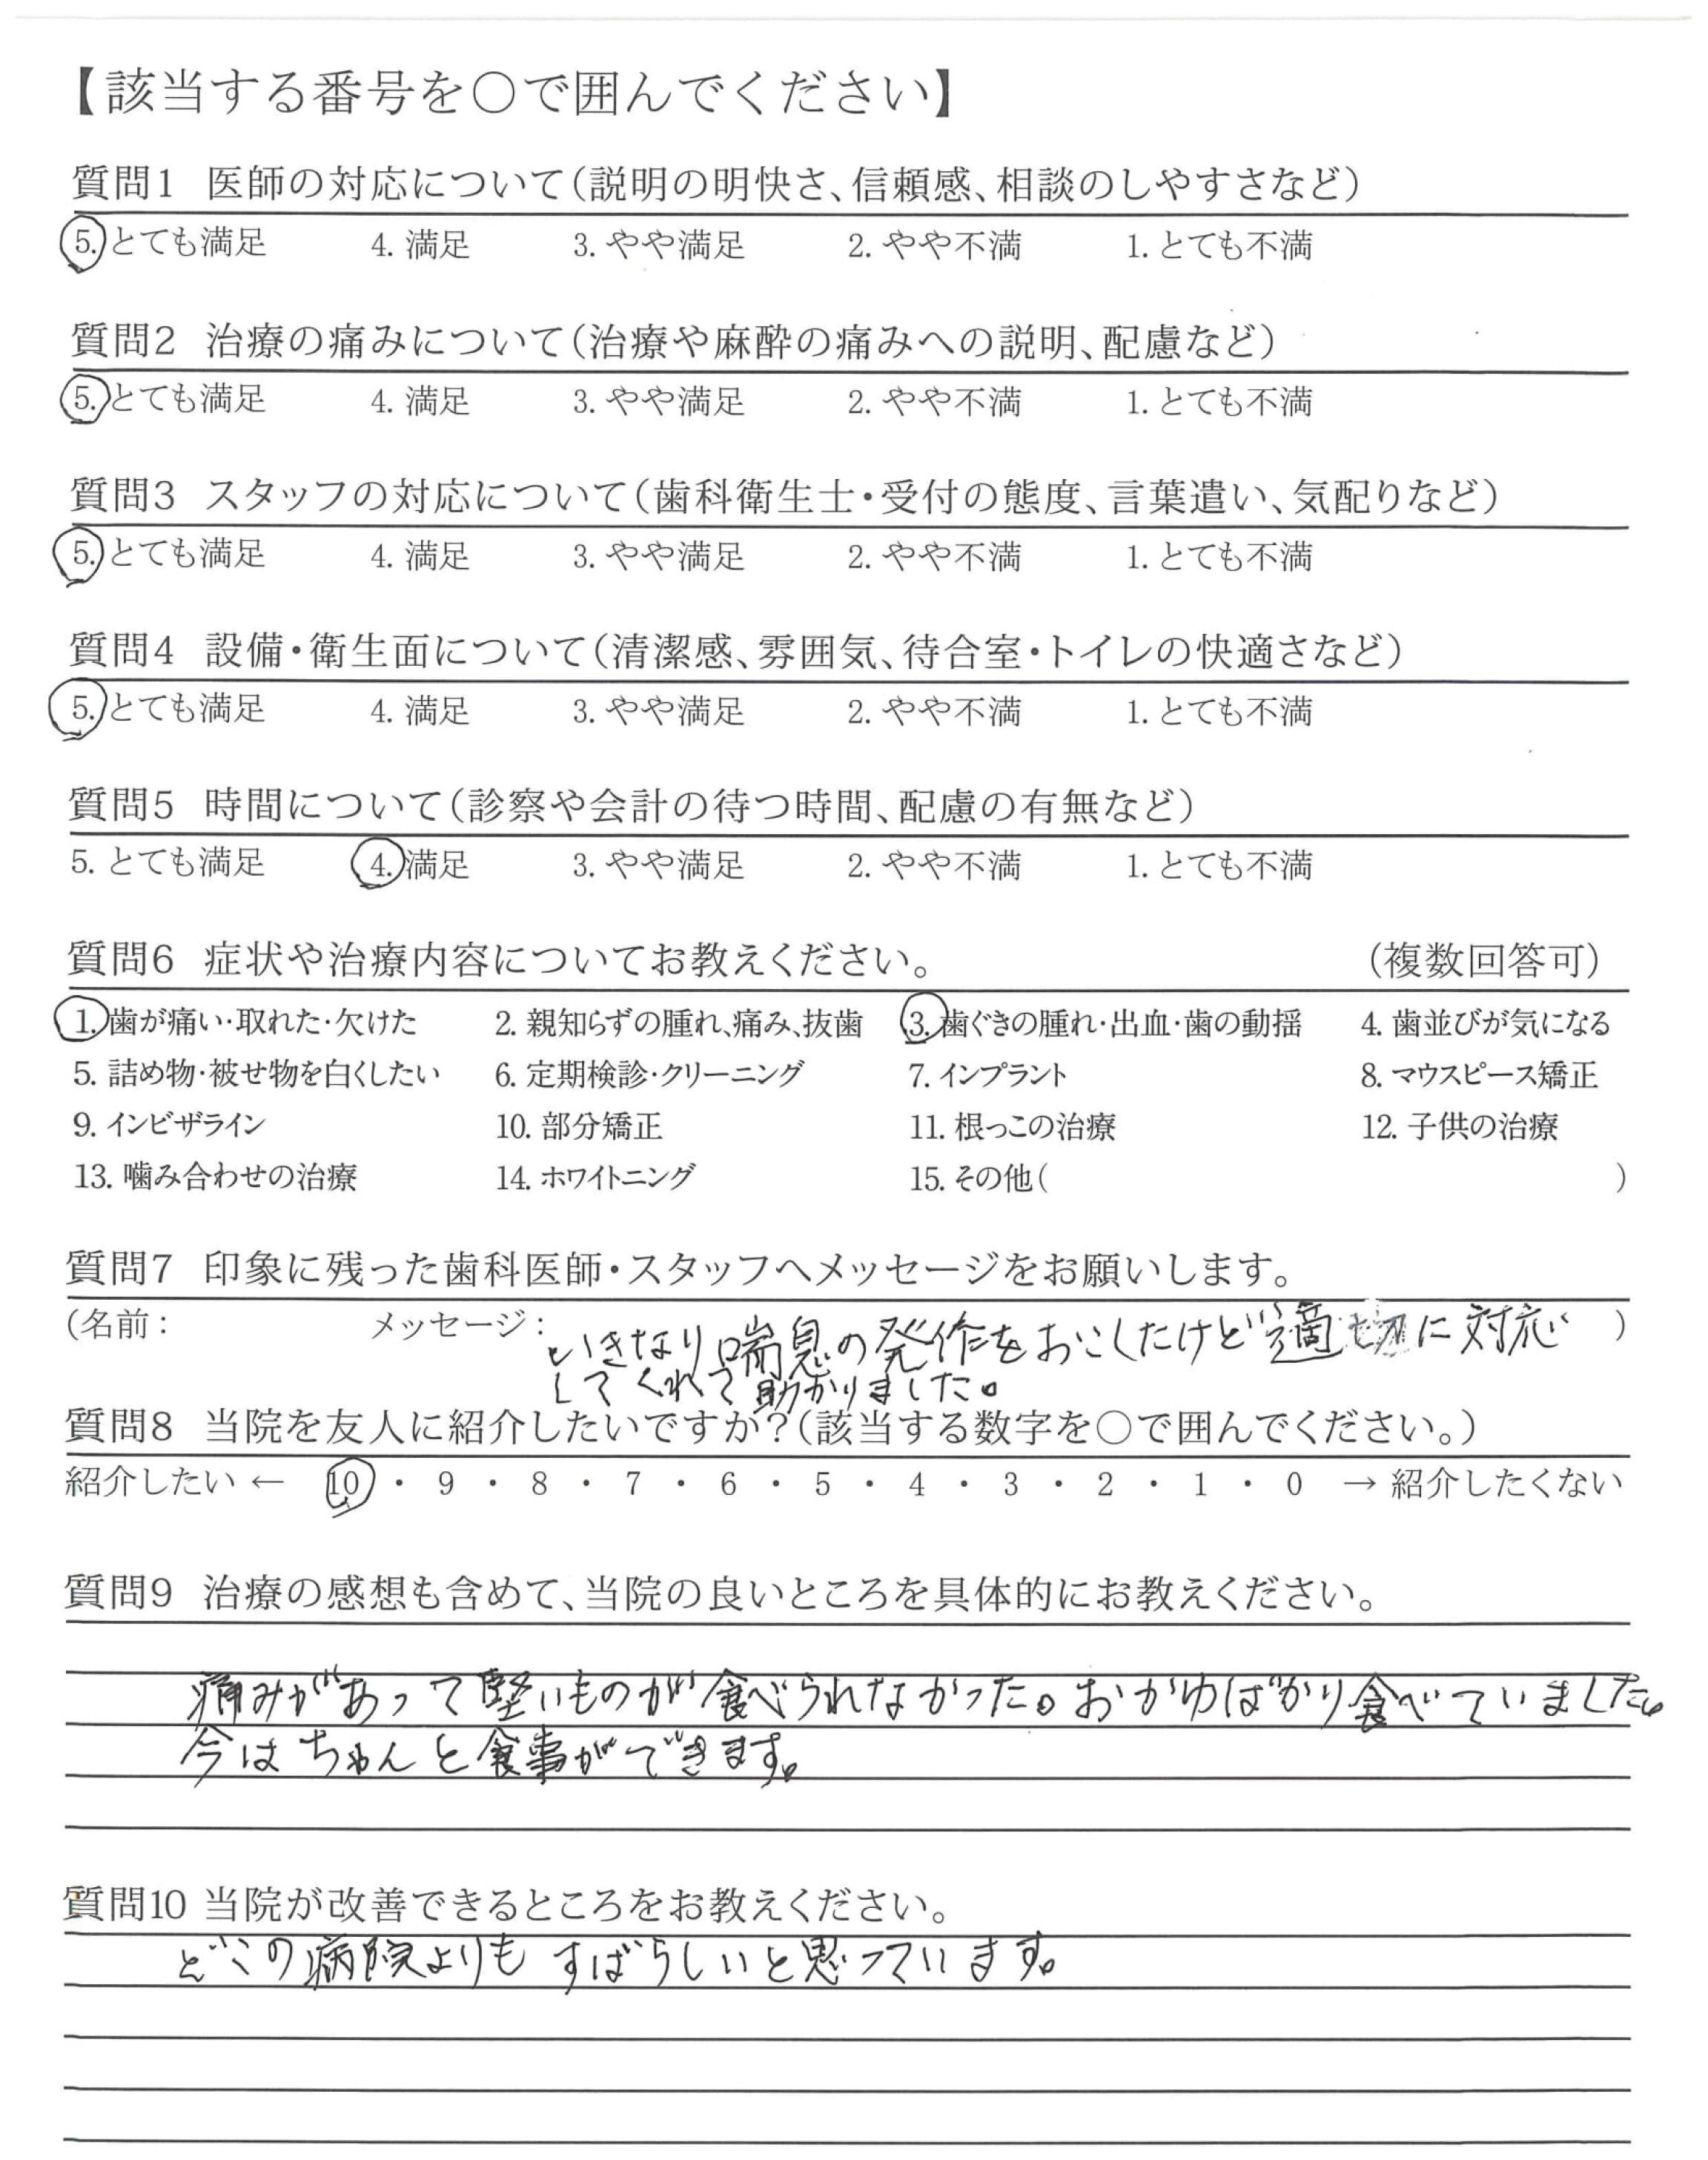 【該当する番号を○で囲んでください】
質問1 医師の対応について(説明の明快さ、信頼感、相談のしやすさなど)
5. とても満足 4. 満足 3. やや満足 2. やや不満 1. とても不満
質問2 治療の痛みについて(治療や麻酔の痛みへの説明、配慮など)
5. とても満足 4. 満足 3. やや満足 2. やや不満 1. とても不満
質問3 スタッフの対応について(歯科衛生士・受付の態度、言葉遣い、気配りなど)
5. とても満足 4. 満足 3. やや満足 2. やや不満 1. とても不満
質問4 設備・衛生面について(清潔感、雰囲気、待合室・トイレの快適さなど)
5. とても満足 4. 満足 3. やや満足 2. やや不満 1. とても不満
質問5 時間について(診察や会計の待つ時間、配慮の有無など)
5. とても満足 4. 満足 3. やや満足 2. やや不満 1. とても不満
質問6 症状や治療内容についてお教えください。 (複数回答可)
1. 歯が痛い・取れた・欠けた 2. 親知らずの腫れ、痛み、抜歯 3. 歯ぐきの腫れ・出血・歯の動揺 4. 歯並びが気になる
5. 詰め物・被せ物を白くしたい 6. 定期検診・クリーニング 7. インプラント 8. マウスピース矯正
9. インビザライン 10. 部分矯正 11. 根っこの治療 12. 子供の治療
13. 噛み合わせの治療 14. ホワイトニング 15. その他( )
質問7 印象に残った歯科医師・スタッフへメッセージをお願いします。
(名前: メッセージ: いきなり喘息の発作をおこしたけど適切に対応 )
してくれて助かりました。
質問8 当院を友人に紹介したいですか?(該当する数字を○で囲んでください。)
紹介したい ← 10 ・ 9 ・ 8 ・ 7 ・ 6 ・ 5 ・ 4 ・ 3 ・ 2 ・ 1 ・ 0 → 紹介したくない
質問9 治療の感想も含めて、当院の良いところを具体的にお教えください。
痛みがあって堅いものが食べられなかった。おかゆばかり食べていました。
今はちゃんと食事ができます。
質問10 当院が改善できるところをお教えください。
どこの病院よりもすばらしいと思っています。